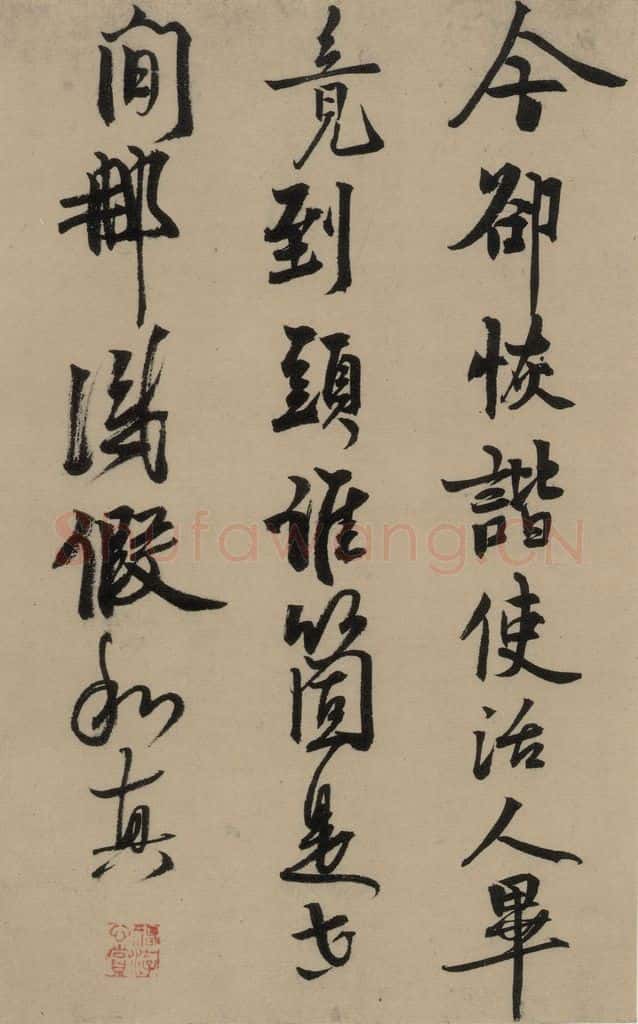 今卻恢諧使活人畢
竟到頭誰箇是世
間那識假和真
shufawang.CN